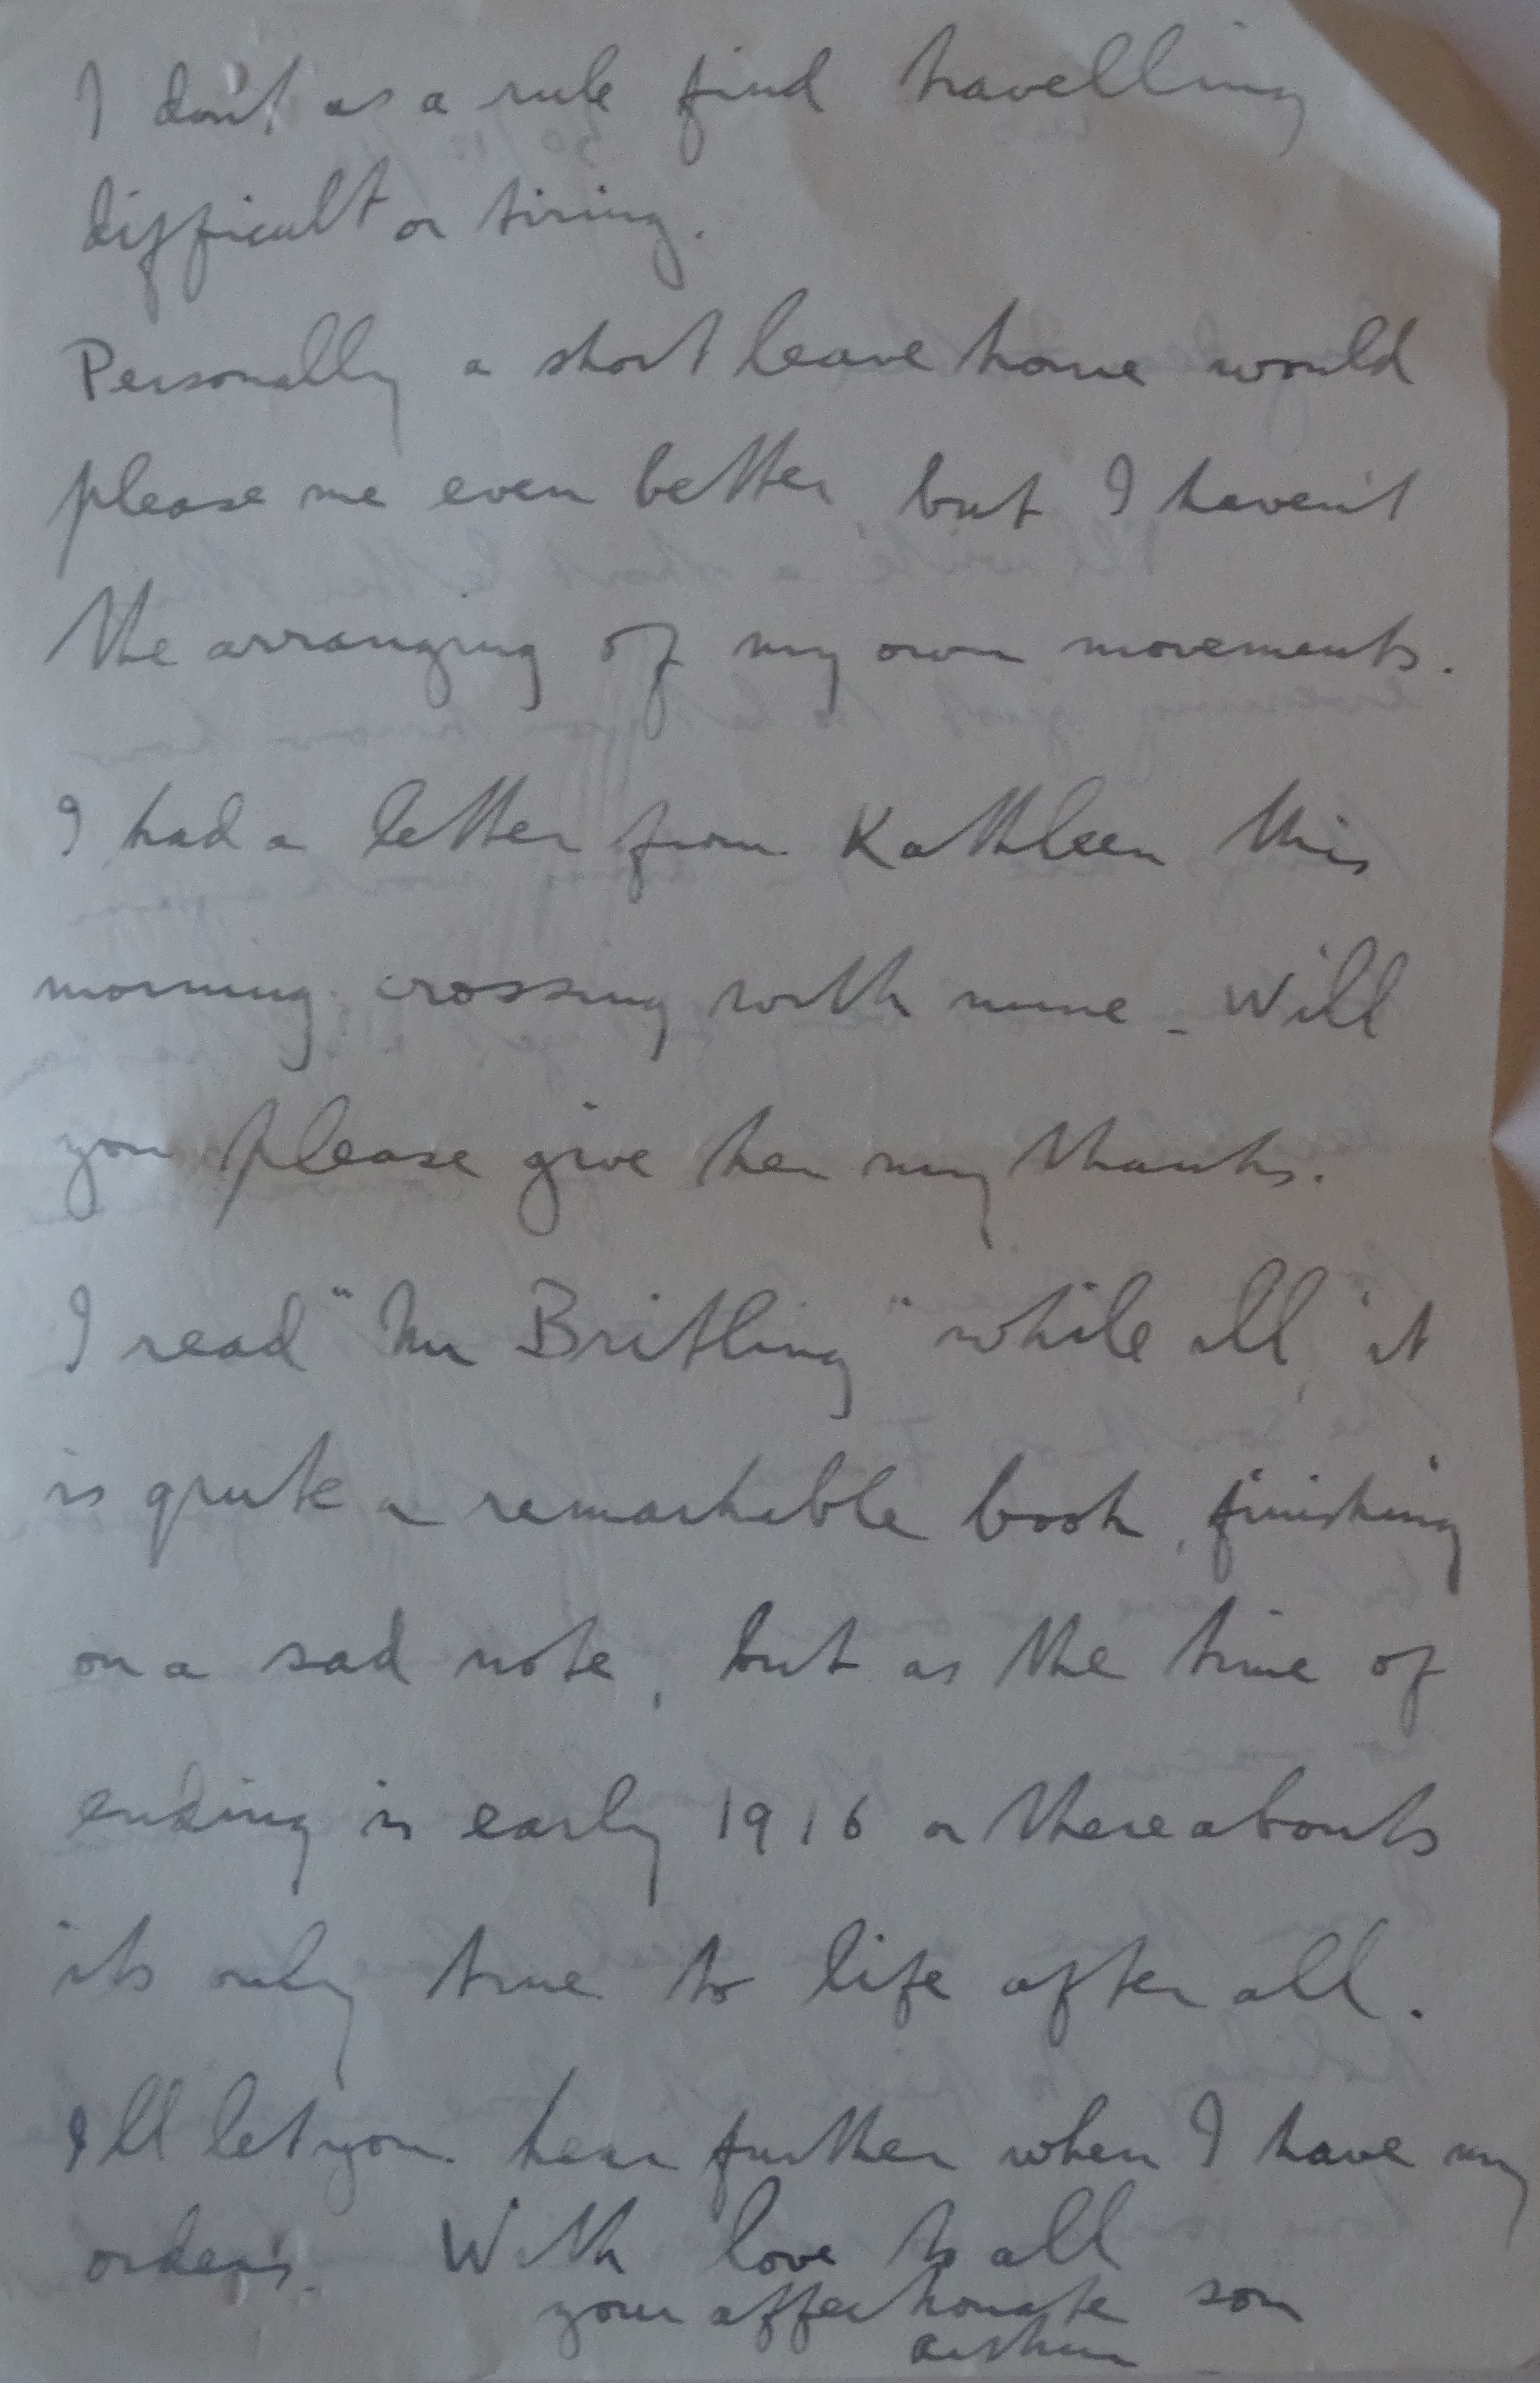 I don't as a rule find travelling
difficult or tiring.
Personally a short leave home would
please me even better, but I haven't
the arranging of my own movements.
I had a letter from Kathleen this
morning, crossing with mine - Will
you please give her my thanks.
I read "Mr Britling" while ill, it
is quite a remarkable book, finishing
on a sad note, but as the time of
ending is early 1916 or thereabouts
its only true to life after all.
I'll let you hear further when I have my
orders. With love to all
your affectionate son
Arthur